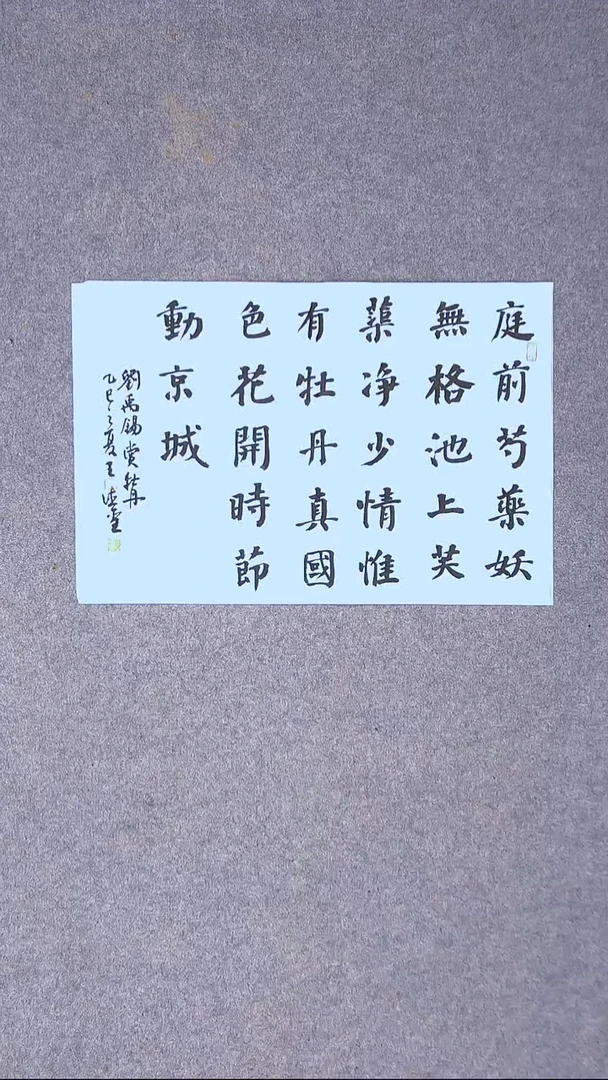 庭前芍藥妖
無格池上芙
蕖净少情惟
有牡丹真國
色花開時節
動京城
劉禹錫赏牡丹
乙巳之夏王